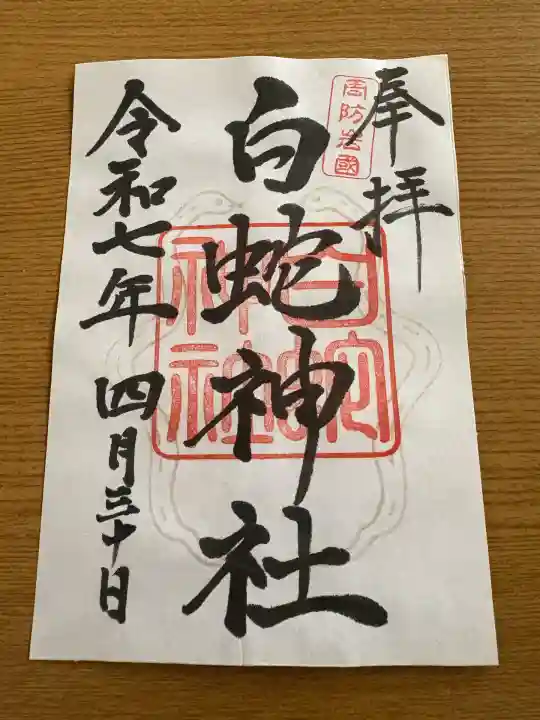 奉拝
周防岩國
白蛇神社
白蛇神社
令和七年 四月三十日